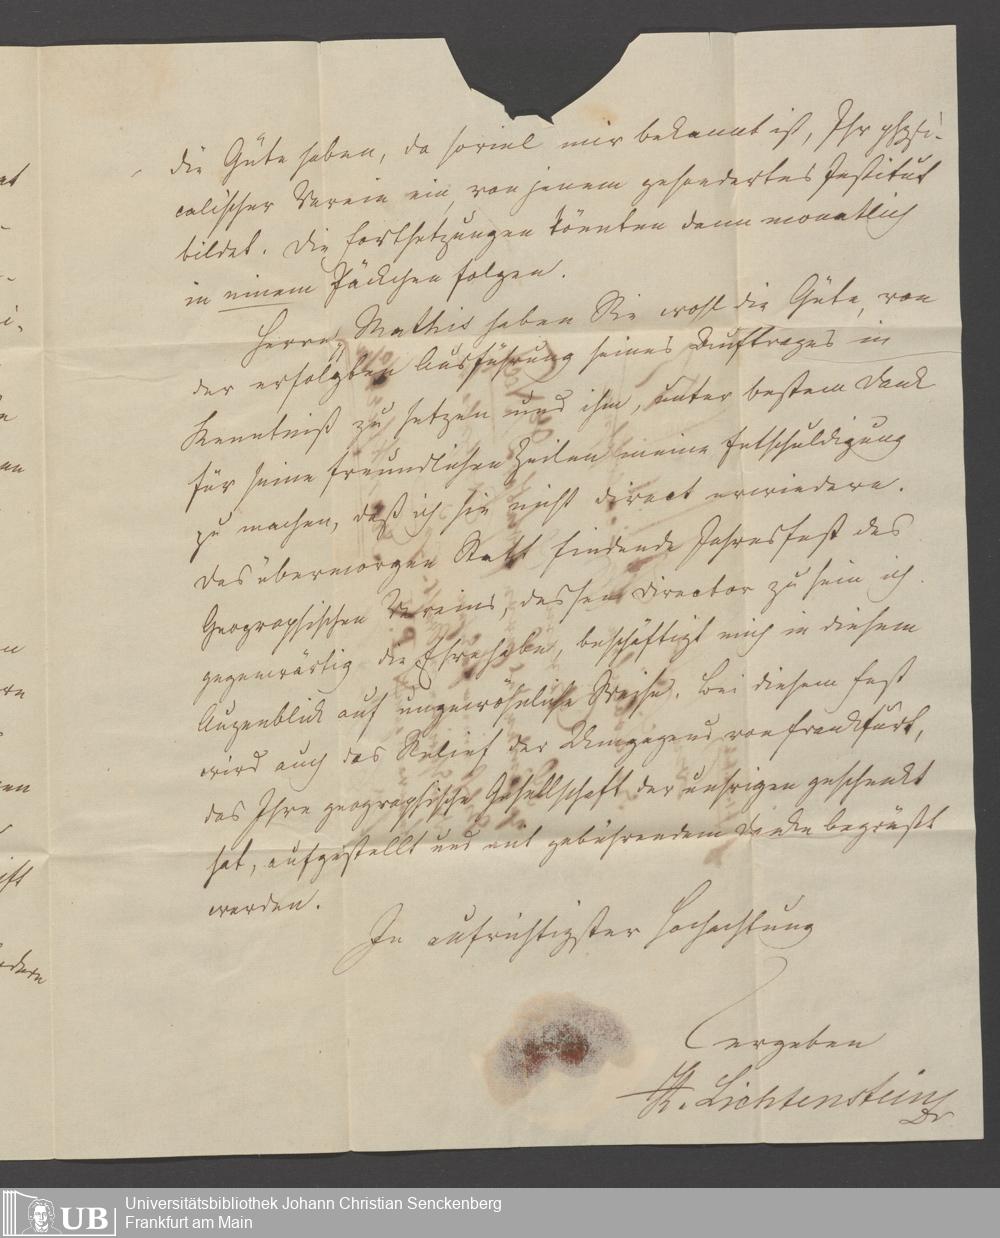 die Güte haben, da soviel mir bekannt ist, Ihr physi-
calischer Verein ein, von jenem gesondertes Institut
bildet. Die Fortsetzungen könnten dann monatlich
in einem Päckchen folgen.
Herrn Mathis haben Sie wohl die Güte, von
der erfolgten Ausführung seines Auftrages in
Kenntniß zu setzen und ihm, unter bestem Dank
für seine freundlichen Zeilen meine Entschuldigung
zu machen, daß ich sie nicht direct erwiedere.
Das übermorgen Statt findende Jahresfest des
Geographischen Vereins, dessen Director zu sein ich
gegenwärtig die Ehre habe, beschäftigt mich in diesem
Augenblick auf ungewöhnliche Weise. Bei diesem Fest
wird auch das Relief der Umgegend von Frankfurt,
das Ihre geographische Gesellschaft der unsrigen geschenkt
hat, aufgestellt und mit gebührendem Danke begrüßt
werden.
In aufrichtigster Hochachtung
ergeben
H. Lichtenstein
Dr
UB
Universitätsbibliothek Johann Christian Senckenberg
Frankfurt am Main